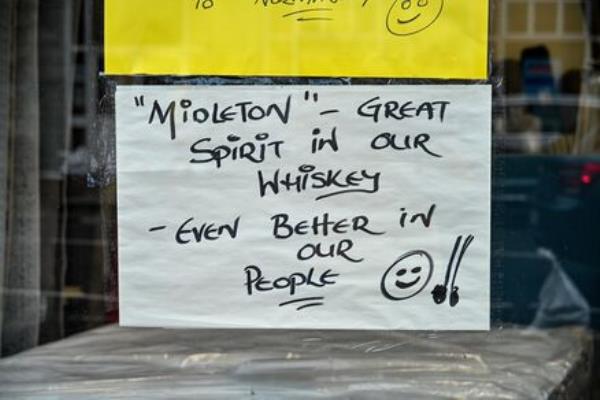 "MiDLETON" - GREAT
SPiRiT iN OUR
WHiSKEY
- EVEN BETTER iN
OUR
PEOPLE !!